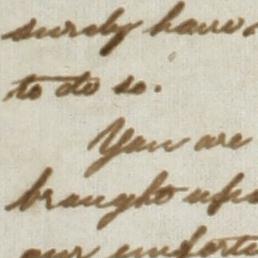 surely have
to do so.
You are
brought upo
our unfortu